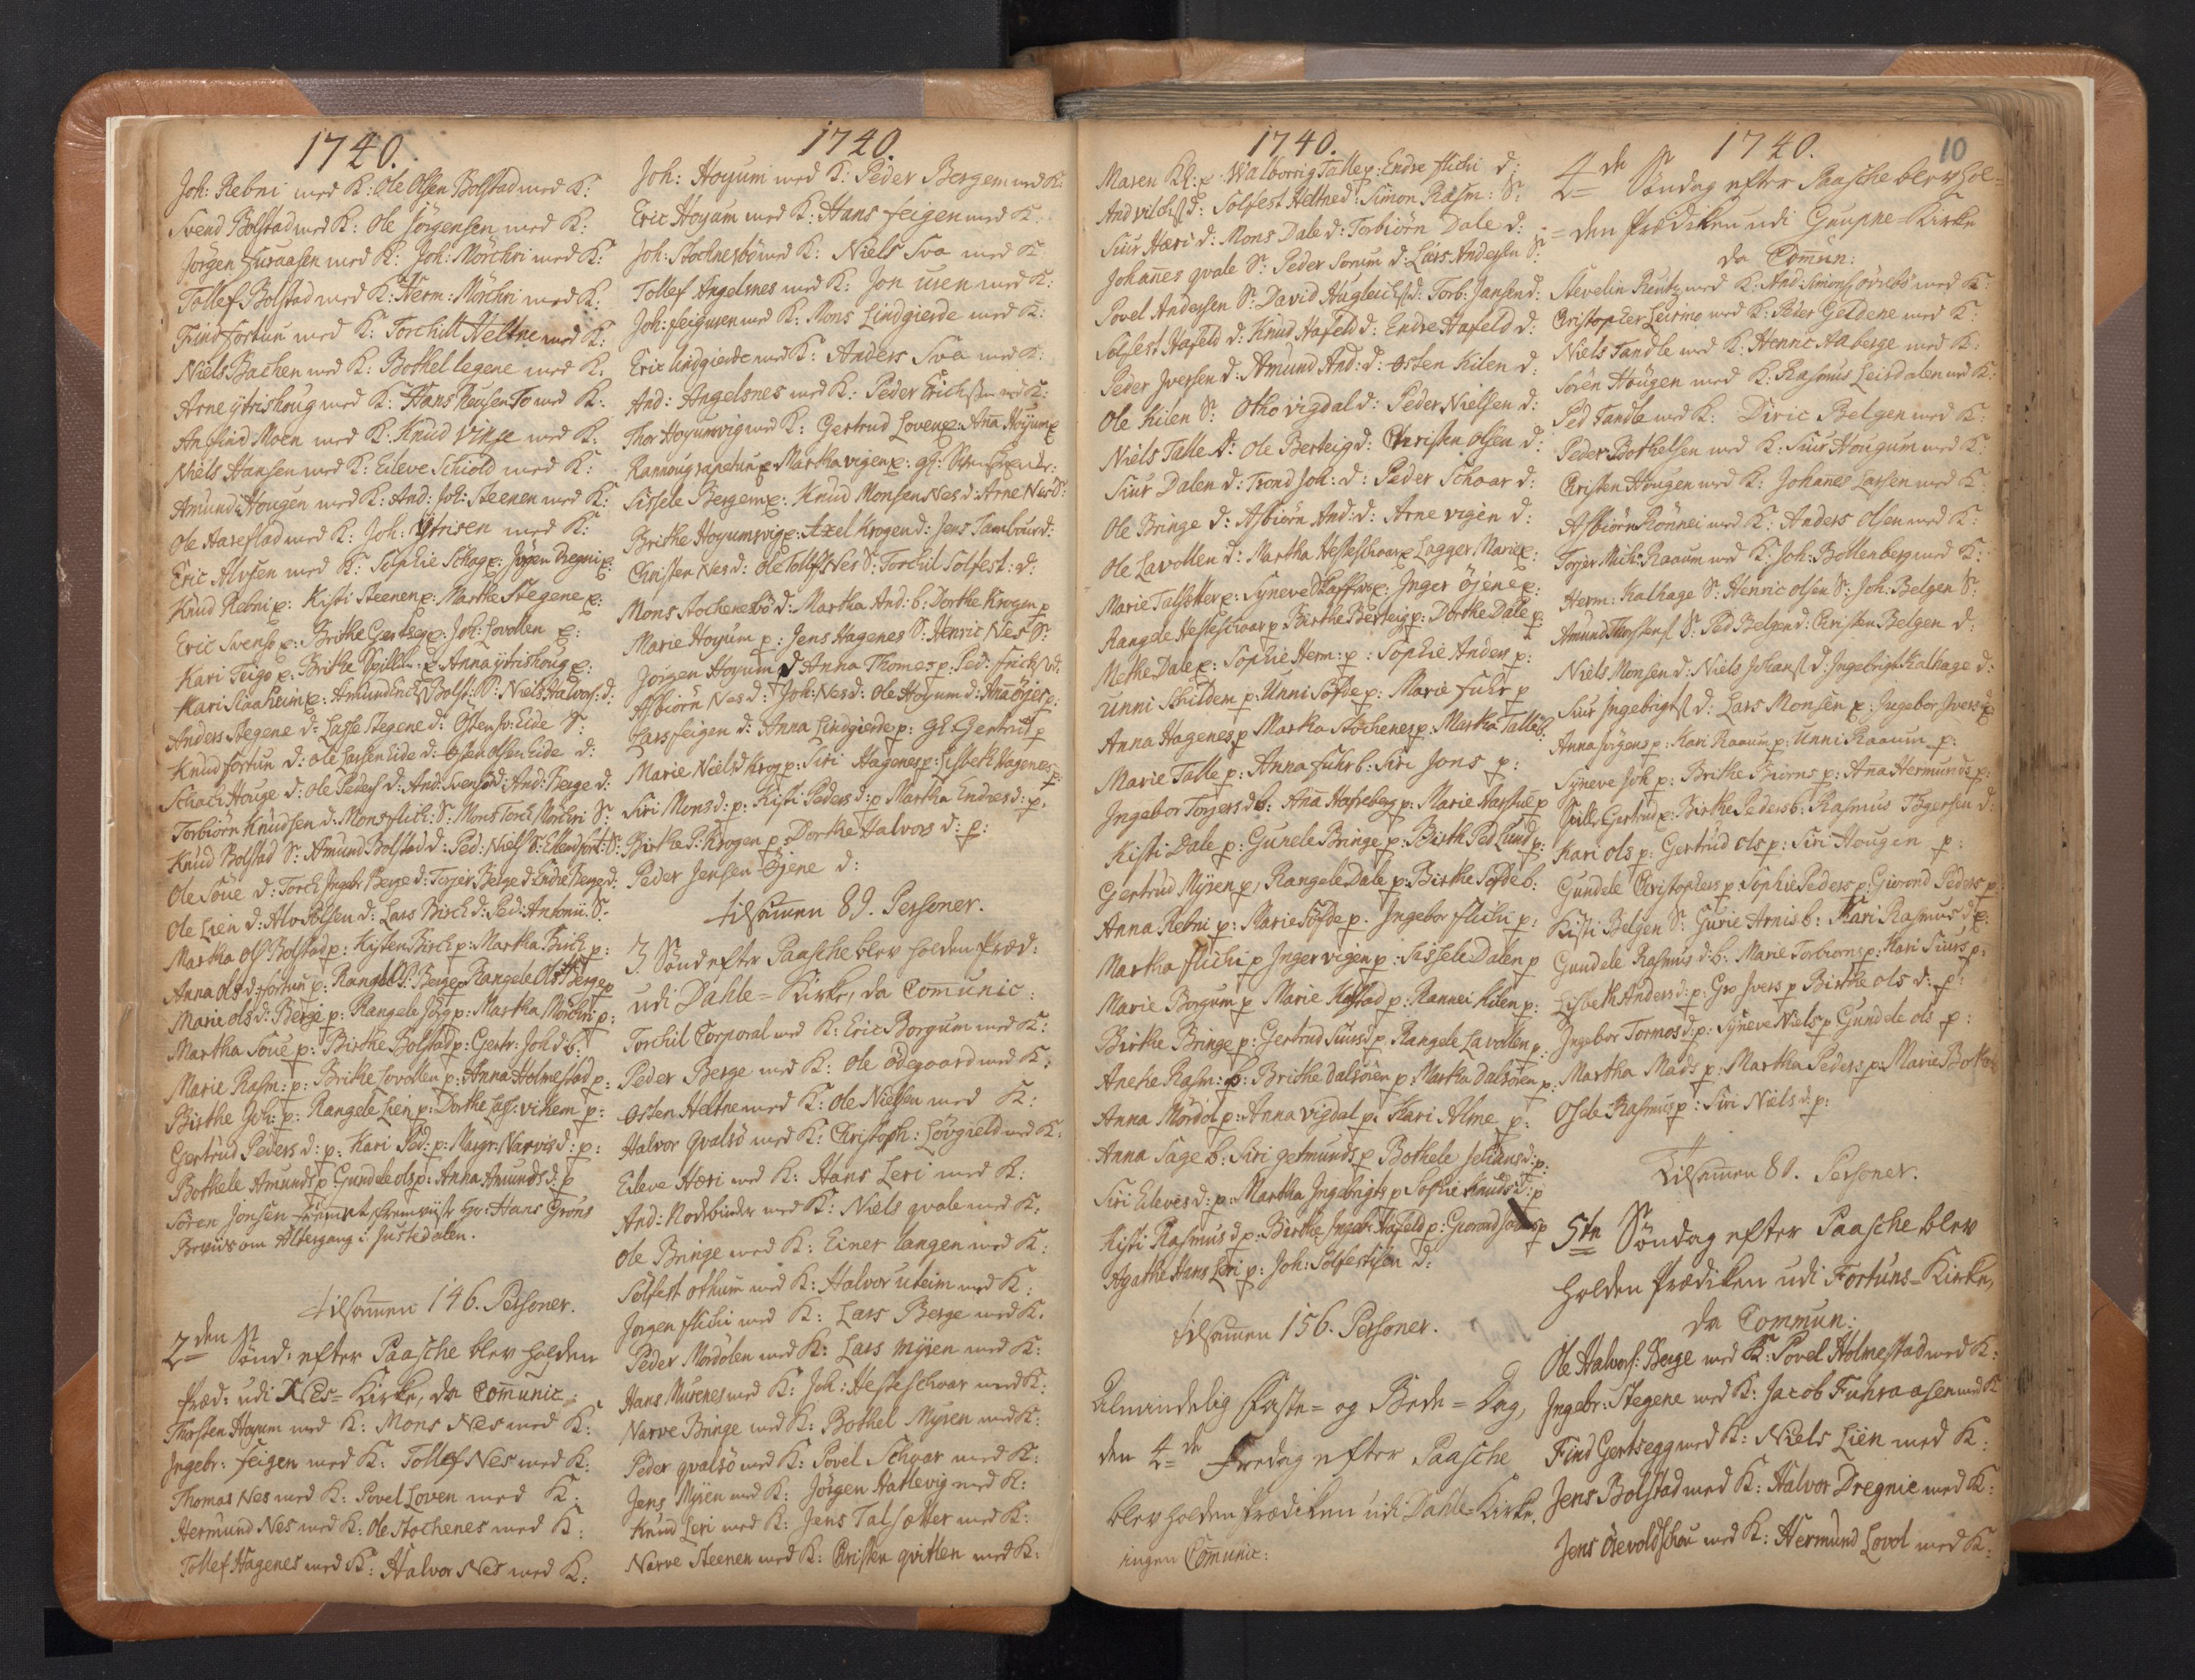 1740.
Joh: Rebni med K: Ole Olsen Bolstad med K:
Svend Bolstad med K: Ole Jörgensen med K:
Jörgen Furaasen med K: Joh: Mörchri med K:
Tollef Bolstad med K: Herm: Mörchri med K:
Find Fortun med K: Torchill Heltne med K:
Niels Bachen med K: Bothel legene med K.
Arne ÿtrishoug med K: Hans To med K:
An find Moen med K: Knud Vinje med K:
Niels Hansen med K: Eileve Schiold med K:
Amund Hougen med K: And: Joh: Steenen med K:
Ole Harestad med K: Joh: Ÿtrisen med K:
Eric Alvsen med K: Sophie p: Jörgen Dregni p:
Knud Rebni p: Kisti Steenen p: Marthe Stegene p:
Eric Svens p: Brithe Gertseg p: Joh: Lovollen p:
Kari Teigo p: Brithe Spill: p: Anna ÿtrishoug p:
Kari Slaaheim p: Amund Bolst: S: Niels Halvors: d:
Anders Stegene d: Lasse Stegene d: Östen Eide S:
Knud fortun d: Ole Larsen Eide d: Osten Olsen Eide d:
Schach Houge d: Ole Peders d: And: Svens d: And: Berge d:
Torbiörn Knudsen d: Mons flich: S: Mons Torch Mörchri S:
Knud Bolstad S: Amund Bolstad d: Ped: Niels S:
Ole Söue d: Torch Ingebr Berge d: Torjer Berge d: Endre Berge d:
Ole Lien d: Alv d: Lars Birch d: Ped: Antonii: S.
Martha Ols Bolstad p: Kisten Birch p: Martha Birch p:
Anna Ols d: fortun p: Rangele Berge p: Rangele Ols Berge p
Marie Ols d: Berge p: Rangele Jörg p: Martha Mörchri p:
Martha Söue p: Birthe Bolstad p: Gertr: Joh d b:
Marie Rasm: p: Brithe Lovollen p: Anna Holmestad p:
Birthe Joh: p: Rangele Lien p: Dorthe Lass: vikem p:
Gertrud Peders d: p: Kari Ped: p: Margr: Narvis d: p:
Bothele Amunds p Gundele ols p: Anna Amunds d: p
Sören Jonsen fremviist Hr: Hans Gröns
Beviis om Altergang i Justedalen.
tilsammen 146. Personer.
2den S Sönd: efter Paasche blev holden
Præd: udi Nes=Kirke, da Communic:
Thorsten Hoyum med K: Mons Nes med K:
Ingebr: Feigen med K: Tollef Nes med K:
Thomas Nes med K: Povel Loven med K:
Hermund Nes med K: Ole Stochenes med K:
Tollef Hagenes med K: Halvor Nes med K:
1740.
Joh: Hoyum med K: Peder Bergem med K:
Eric Hoyum med K: Hans feigen med K:
Joh: Stochnesbö med K: Niels Sva med K:
Tollef Angelsnes med K: Jon uren med K:
Joh: feiguren med K: Mons Lindgierde med K:
Eric lindgierde med K: Anders Sva med K:
And: Angelsnes med K: Peder Erichsen med K:
Thor Hoyumvig med K: Gertrud Loven p: Anna Hoyum p
Rannoug p Martha vigen p:
Sissele Bergem p: Knud Monsen Nes d: Arne Nes d:
Brithe Hoyumvig p: Axel Krogen d: Jens Tambour d:
Christen Nes d: Ole Tollfs Nes S: Torchil Solfest: d:
Mons Stochenebö d: Martha And: b: Dorthe Krogen p
Marie Hoyum p: Jens Hagenes S: Henric Nes S:
Jörgen Hoyum d Anna Thomes p: Ped: Erichs d:
Asbiörn Nes d: Joh: Nes d: Ole Hoyum d: Anna öjer p:
Lars feigen d: Anna Lindgierde p: Gl. Gertrud p
Marie Niels d Krog p: Siri Hagenes p: Lisbeth Hagenes p:
Siri Mons d: p: Kisti Peders d: p Martha Endres d: p.
Birthe P: Krogen p: Dorthe Halvors d: p:
Peder Jensen Öjene d:
tilsammen 89. Personer.
3. Sönd efter Paasche blev holden Præd:
udi Dahle=Kirke, da Communic:
Torchil Corporal med K: Eric Borgum med K:
Peder Berge med K: Ole ödegaard med K:
Osten Heltne med K: Ole Nielsen med K:
Halvor qvalsö med K: Christoph: Lövgield med K:
Eileve Hæri med K: Hans Leri med K:
And: Nodebinder med K: Niels qvale med K:
Ole Bringe med K: Einer langen med K:
Solfest othum med K: Halvor uteim med K:
Jorgen flichi med K: Lars Berge med K:
Peder Mordolen med K: Lars myren med K:
Hans Murenes med K: Joh: Hesteschoar med K:
Narve Bringe med K: Bothel Myren med K:
Peder qvalsö med K: Povel Schoar med K:
Jens Myren med K: Jörgen Hatlevig med K:
Knud Leri med K: Jens Talsætter med K:
Narve Steenen med K: Christen qvitlen med K:
1740.
Maren Kl: p: Walborrig Talle p: Endre flichi d:
And vilchs d: Solfest Heltne d: Simon Rasm: S:
Siur Hæri d: Mons Dale d: Torbiörn Dale d:
Johannes qvale S: Peder Sorum d: Lars Andersen S:
Povel Andersen S: David Hugleichs d: Torb: Jansen d:
Solfest Hafeld d: Knud Hafeld d: Endre Hafeld d:
Peder Iversen d: Amund And: d: Osten Kilen d:
Ole Kilen S: Otho vigdal d: Peder Nielsen d:
Niels Talle S: Ole Berteig d: Christen Olsen d:
Siur Dalen d: Trond Joh: d: Peder Schoar d:
Ole Bringe d: Asbiörn And: d: Arne vigen d:
Ole Lavollen d: Martha Hesteschoar p Lagger Marie p:
Marie Talsetter p: Syneve p: Inger Öjene p:
Rangele Hesteschoar p Birthe Berteig p: Dorthe Dale p:
Methe Dale p: Sophie Herm: p: Sophie Anders p:
Unni Skildem p: Unni Söfde p: Marie fuhr p
Anna Hagenes p Martha Stochenes p: Martha Talle b:
Marie Talle p: Anna fuhr b: Siri Jons p:
Ingebor Torjers d b: Anna Hassreberg p: Marie Harstue p
Kisti Dale p: Gunele Bringe p: Birth Ped Lund p:
Gertrud Myren p, Rangele Dale p: Birthe Söfde b:
Anna Rebni p: Marie Söfde p. Ingebor flichi p:
Martha flichi p Inger vigen p: Sissele Dalen p
Marie Borgum p Marie Kolstad p: Rannei Kilen p:
Birthe Bringe p: Gertrud Siurs d p, Rangele Lavollen p:
Anehe Rasm: p: Brithe Dalsören p: Martha Dalsören p
Anna Mördöl p: Anna vigdal p: Kari Alme p:
Anna Sage b: Siri getmunds p Bothele p:
Siri Eileves d: p: Martha Ingebrigts p Sophie Knuds d: p
Kisti Rasmus d p: Birthe Ingebr Hafeld p: Giorond p
Agathe Hans Leri p: Joh: Solfestsen d:
tilsammen 156. Personer.
Almindelig Faste= og Bede=Dag,
den 4de Fredag efter Paasche
blev holden Prædiken udi Dahle=Kirke,
ingen Communic:
1740.
10
4de S Söndag efter Paasche blev hol=
=den Prædiken udi Gaupne=Kirke
da Commun:
Stevelin Reutz med K: And: Simons med K:
Christopher Leirmo med K: Peder Geldene med K:
Niels Tandle med K: Henric Aaberge med K:
Sören Hougen med K: Rasmus Leirdalen med K:
Ped Tandle med K: Diric Belgen med K:
Peder Bothelsen med K: Siur Hougum med K:
Christen Hougen med K: Johanes Larsen med K
Asbiörn Rönnei med K: Anders Olsen med K:
Torjer Mich: Raaum med K: Joh: Bottenberg med K:
Herm: Kalhage S: Henric olsen S: Joh: Belgen S:
Amund Thorstens S: Ped Belgen d: Christen Belgen d:
Niels Monsen d: Niels Johans d: Ingebrigt Kalhage d:
Siur Ingebrigts d: Lars Monsen p: Ingebor Ivers p
Anna Jörgens p: Kari Raaum p: Unni Raaum p:
Syneve Joh p: Brithe Biörns p: Anna Hermunds p:
Spille Gertrud p: Birthe Peders b: Rasmus Törgersen d:
Kari ols p: Gertrud ols p: Siri Hougen p:
Gundele Christophers p Sophie Peders p: Giorond Peders p
Kisti Belgen S: Gurie Arnis b: Kari Rasmus d p:
Gundele Rasmus d: b: Marie Torbiorns p: Kari Siurs p:
Lisbeth Anders d: p: Gro Ivers p Birthe ols d: p:
Ingebor Tormos d: p: Syneve Niels p Gundele ols p:
Martha Mads p: Martha Peders p: Marie
Osele Rasmus p: Siri Niels d: p:
Tilsammen 81. Personer.
5te Söndag efter Paasche blev
holden Prædiken udi Fortuns=Kirke,
da Commun:
Ole Halvors: Berge med K: Povel Holmestad med K:
Ingebr: Stegene med K: Jacob Fuhraasen med K
Find Gertsegg med K: Niels Lien med K:
Jens Bolstad med K: Halvor Dregnie med K:
Jens med K: Hermund Lovol med K: